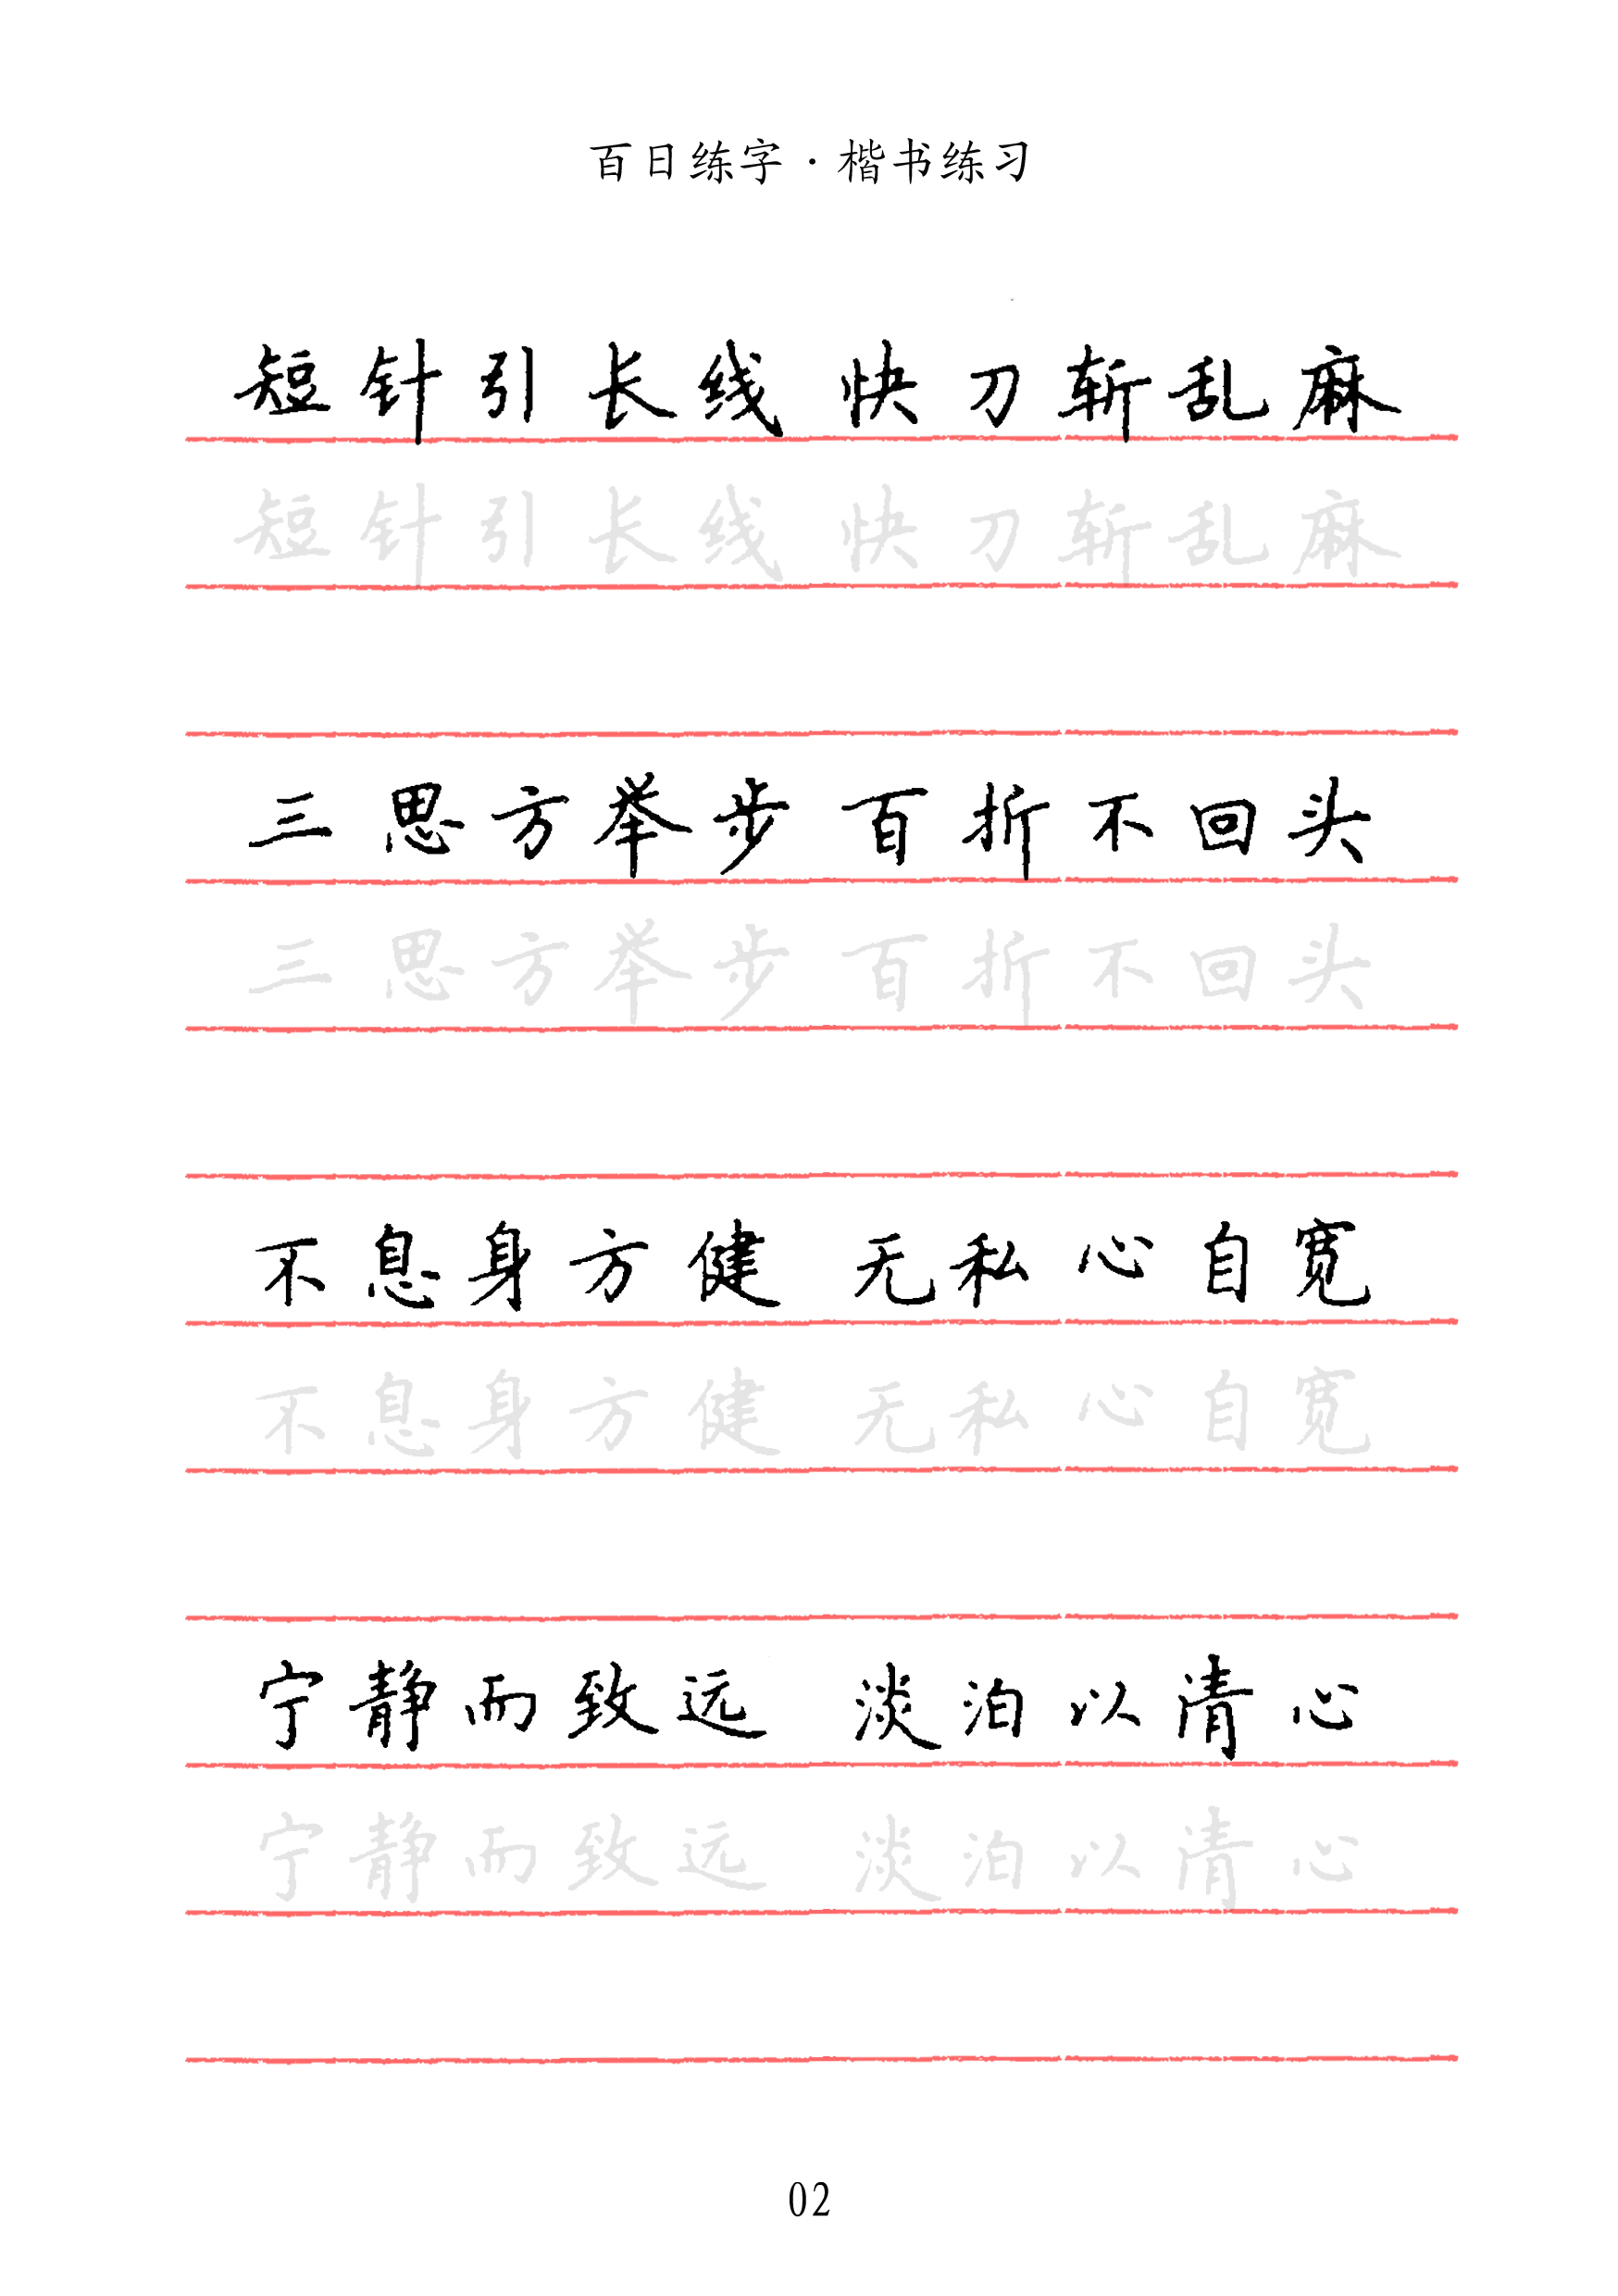 百日练字·楷书练习
短针引长线 快刀斩乱麻
短针引长线 快刀斩乱麻
三思方举步 百折不回头
三思方举步 百折不回头
不息身方健 无私心自宽
不息身方健 无私心自宽
宁静而致远 淡泊以清心
宁静而致远 淡泊以清心
02